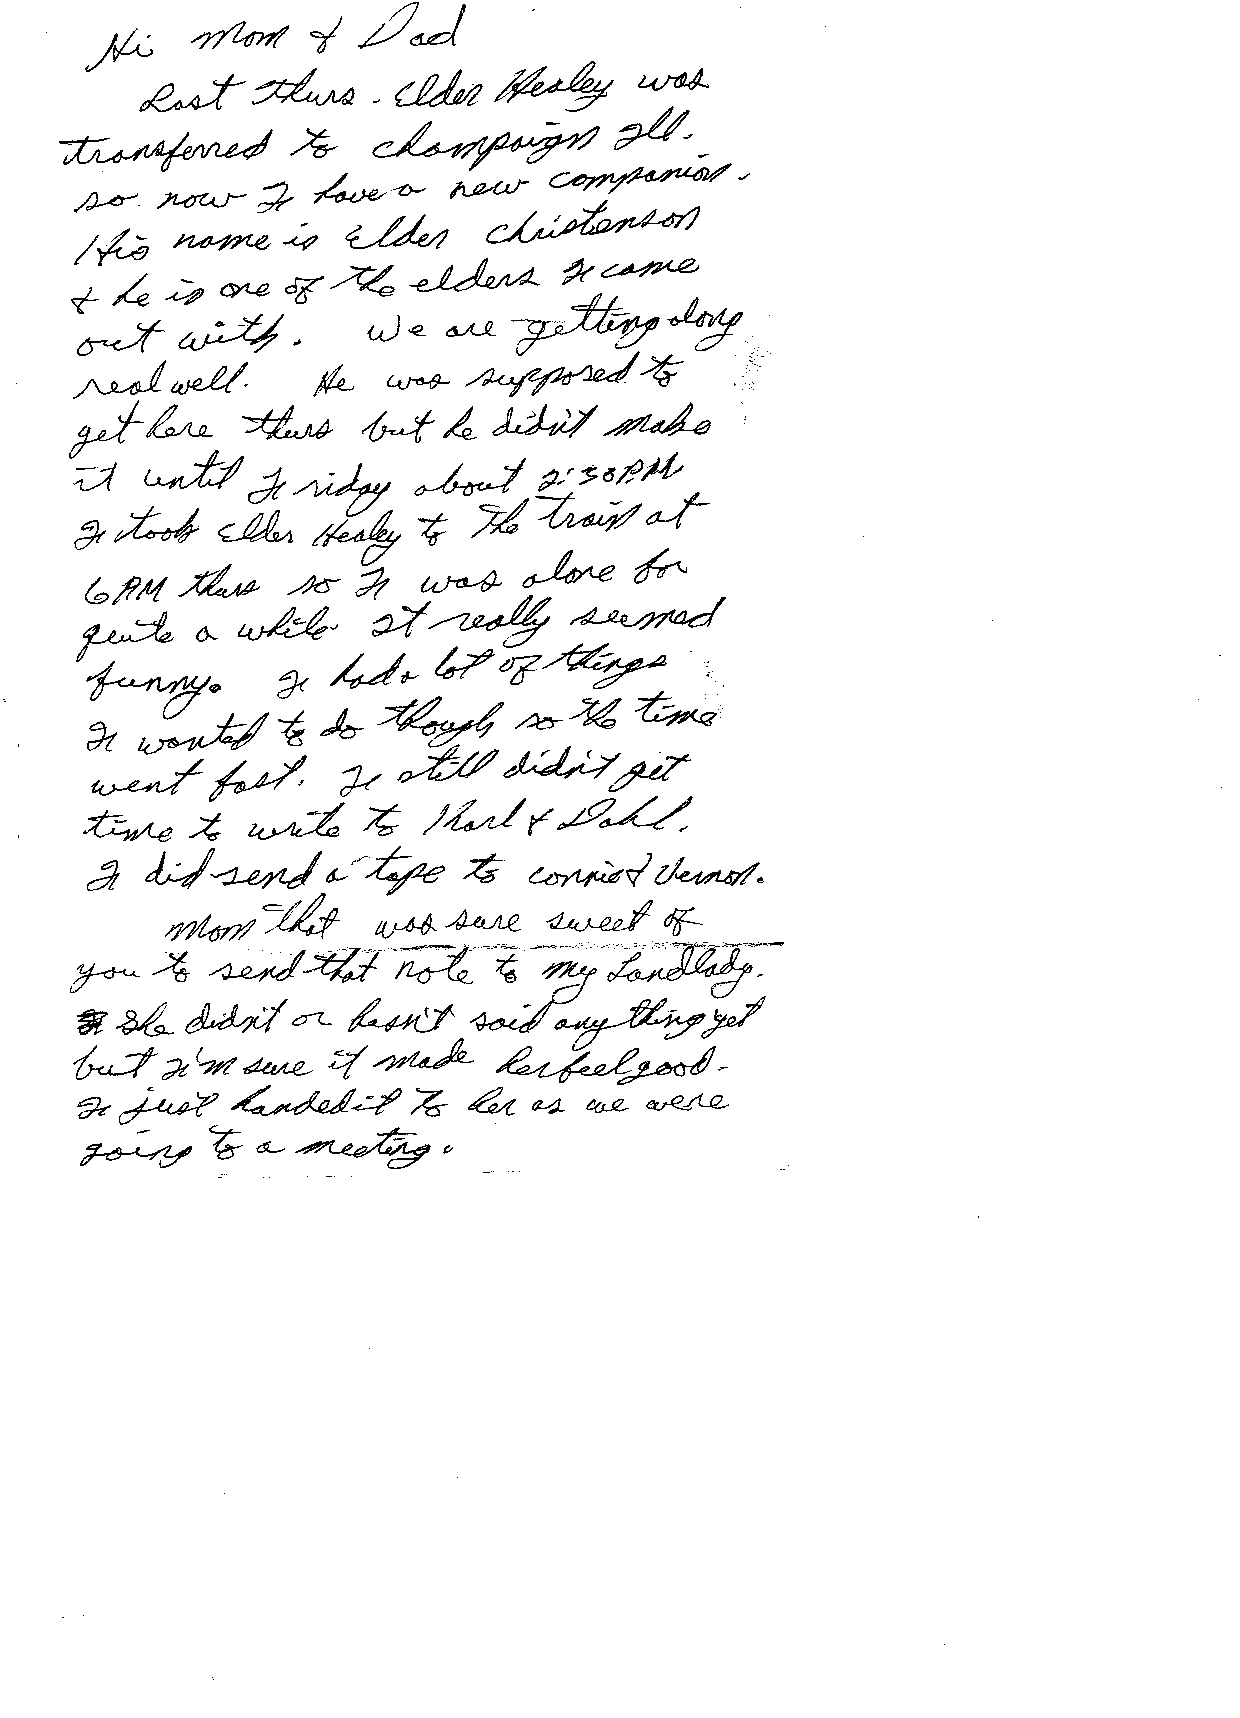 Hi Mom & Dad
Last thurs. Elder Healey was
transferred to champaign Ill.
so now I have a new companion.
His name is Elder Christenson
& he is one of the elders I came
out with. We are getting along
real well. He was supposed to
get here thurs but he didn't make
it until Friday about 2:30PM
I took Elder Healey to the train at
6 PM thurs so I was alone for
quite a while. It really seemed
funny. I had a lot of things
I wanted to do though so the time
went fast. I still didn't get
time to write to Karl & Dahl.
I did send a tape to connie & Vernon.
Mom that was sure sweet of
you to send that note to my Landlady.
She didn't or hasn't said anything yet
but I'm sure it made her feel good.
I just handed it to her as we were
going to a meeting.